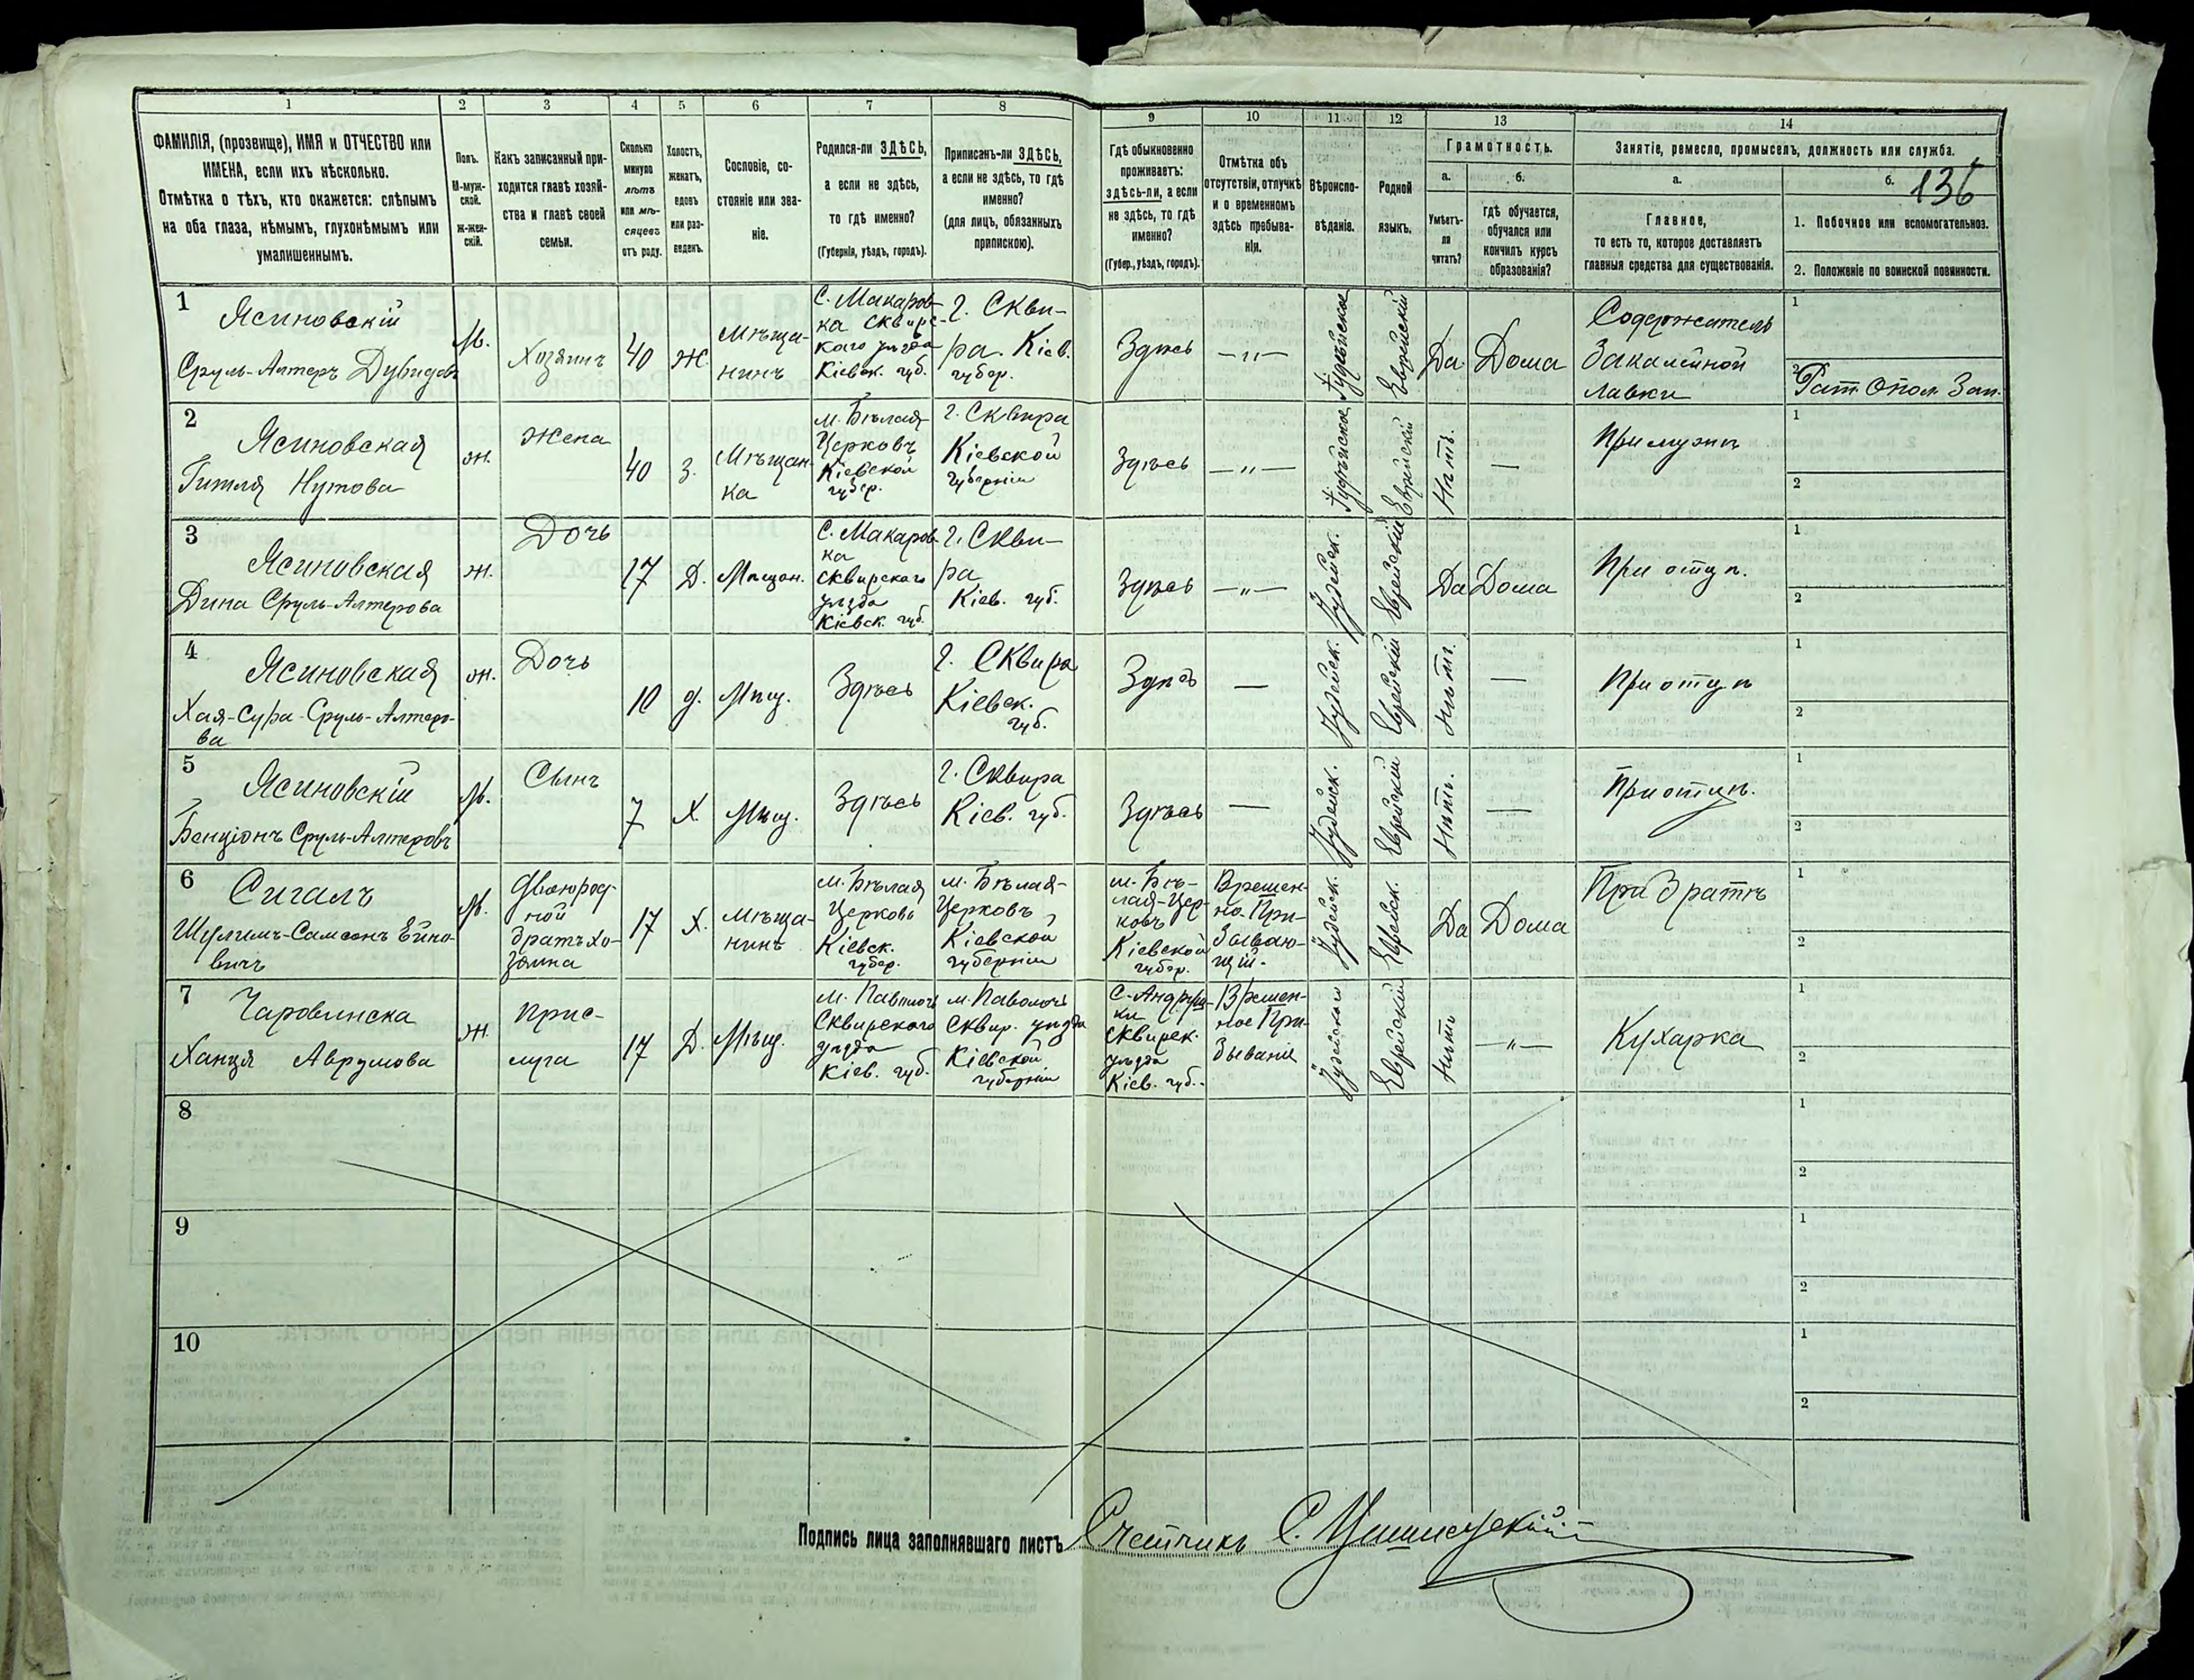 136
1 2 3 4 5 6 7 8 9 10 11 12 13 14
ФАМИЛІЯ, (прозвище), ИМЯ и ОТЧЕСТВО или
ИМЕНА, если ихъ нѣсколько.
Отмѣтка о тѣхъ, кто окажется: слѣпымъ
на оба глаза, нѣмымъ, глухонѣмымъ или
умалишеннымъ.
Полъ.
М-муж-
ской.
Ж-жен-
скій.
Какъ записанный при-
ходится главѣ хозяй-
ства и главѣ своей
семьи.
Сколько
минуло
лѣтъ
или мѣ-
сяцевъ
отъ роду.
Холостъ,
женатъ,
вдовъ
или раз-
веденъ.
Сословіе, со-
стояніе или зва-
ніе.
Родился-ли ЗДѢСЬ,
а если не здѣсь,
то гдѣ именно?
(Губернія, уѣздъ, городъ).
Приписанъ-ли ЗДѢСЬ,
а если не здѣсь, то гдѣ
именно?
(для лицъ, обязанныхъ
припискою).
Гдѣ обыкновенно
проживаетъ:
здѣсь-ли, а если
не здѣсь, то гдѣ
именно?
(Губер., уѣздъ, городъ).
Отмѣтка объ
отсутствіи, отлучкѣ
и о временномъ
здѣсь пребыва-
ніи.
Вѣроиспо-
вѣданіе.
Родной
языкъ.
Грамотность.
а.
Умѣетъ-
ли
читать?
б.
гдѣ обучается,
обучался или
кончилъ курсъ
образованія?
Занятіе, ремесло, промыселъ, должность или служба.
а.
Главное,
то есть то, которое доставляетъ
главныя средства для существованія.
б.
1. Побочное или вспомогательное.
2. Положеніе по воинской повинности.
1
Ясиновскій
Сруль-Алтеръ Дувидовъ
М.
Хозяинъ
40
Ж.
Мѣща-
нинъ
С. Макаров-
ка Сквирс-
каго уѣзда
Кіевск. губ.
г. Скви-
ра. Кіев.
губер.
Здѣсь
—"—
Іудейское
Еврейскій
Да
Дома
Содержатель
бакалейной
лавки
1
2
Рат. Опол. Зап.
2
Ясиновская
Гитля Нутова
ж.
Жена
40
З.
Мѣщан-
ка
м. Бѣлая
Церковъ
Кіевской
губер.
г. Сквира
Кіевской
губерніи
Здѣсь
—"—
Іудейское
Еврейскій
Нѣтъ.
—
При мужѣ
1
2
3
Ясиновская
Дина Сруль-Алтерова
ж.
Дочь
17
Д.
Мѣщан.
С. Макаров-
ка
Сквирскаго
уѣзда
Кіевск. губ.
г. Скви-
ра
Кіев. губ.
Здѣсь
—"—
Іудейск.
Еврейскій
Да
Дома
При отцѣ.
1
2
4
Ясиновская
Хая-Сура-Сруль-Алтеро-
ва
ж.
Дочь
10
д.
Мѣщ.
Здѣсь
г. Сквира
Кіевск.
губ.
Здѣсь
—
Іудейск.
Еврейскій
Нѣтъ.
—
При отцѣ
1
2
5
Ясиновскій
Бенціонъ Сруль-Алтеровъ
М.
Сынъ
7
Х
Мѣщ.
Здѣсь
г. Сквира
Кіев. губ.
Здѣсь
—
Іудейск.
Еврейскій
Нѣтъ.
—
При отцѣ.
1
2
6
Сигалъ
Шулимъ-Самсонъ Ейно-
вичъ
М.
Двоюрод-
ной
братъ хо-
зяина
17
Х.
Мѣща-
нинъ
м. Бѣлая
Церковь
Кіевск.
губер.
м. Бѣлая-
Церковъ
Кіевской
губерніи
м. Бѣ-
лая-Цер-
ковъ
Кіевской
губер.
Времен-
но-При-
бываю-
щій.
Іудейск.
Еврейск.
Да
Дома
При братѣ
1
2
7
Ханця Аврумова
ж.
Прис-
луга
17
Д.
Мѣщ.
м. Паволочь
Сквирского
уѣзда
Кіев. губ.
м. Паволочь
Сквир. уѣзда
Кіевской
губерніи
Сквирск.
уѣзда
Кіев. губ.
Времен-
ное При-
бываніе
Іудейское
Еврейскій
Нѣтъ
—"—
Кухарка
1
2
8
1
2
9
1
2
10
1
2
Подпись лица заполнявшаго листъ Счетчикъ С.